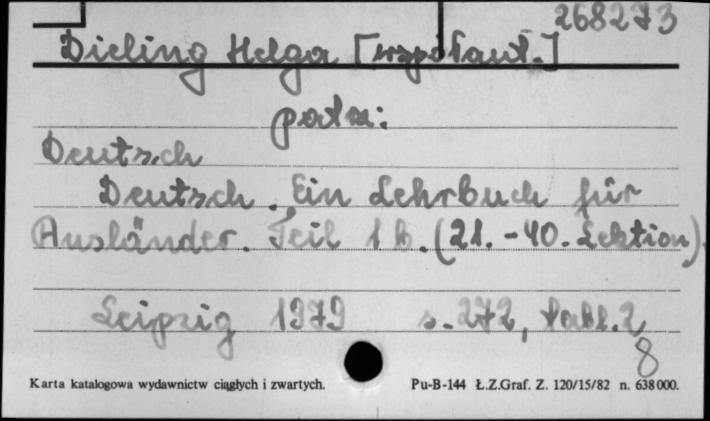 268273
Dieling Helga [współaut.]
patrz:
Deutsch
Deutsch. Ein Lehrbuch für
Ausländer. Teil 1 b. (21. - 40. Lektion).
Leipzig 1979 s. 272, tabl. 2
8
Karta katalogowa wydawnictw ciągłych i zwartych. Pu-B-144 Ł.Z.Graf. Z. 120/15/82 n. 638 000.